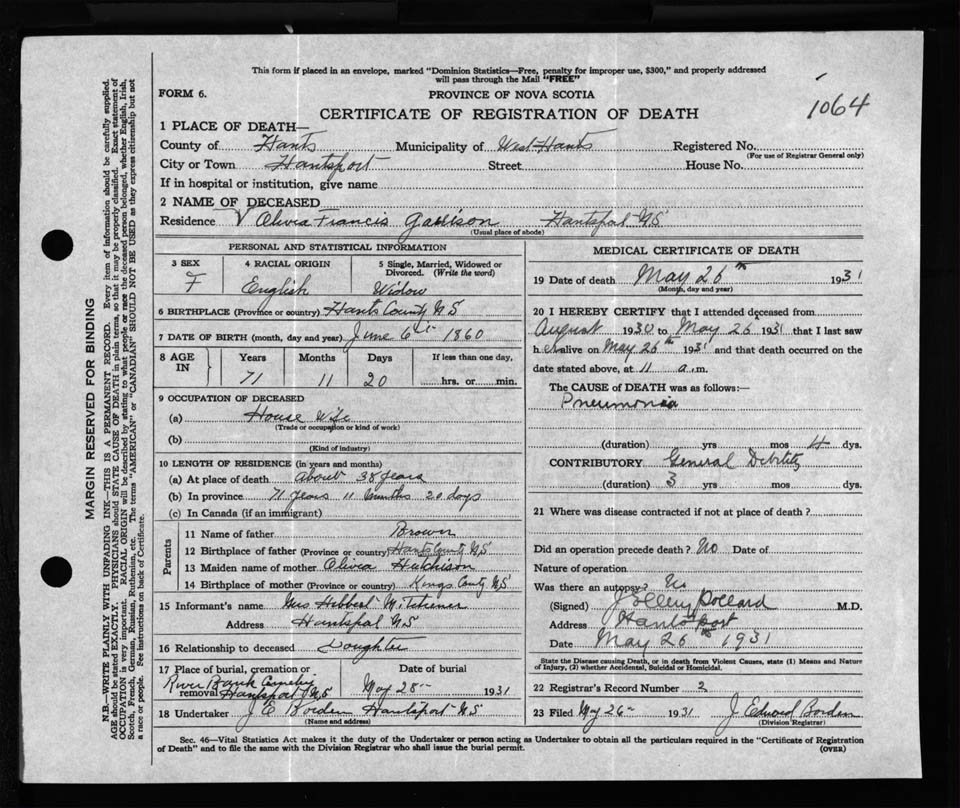 This form if placed in an envelope, marked "Dominion Statistics—Free, penalty for improper use, $300," and properly addressed
will pass through the Mail "FREE"
FORM 6.
PROVINCE OF NOVA SCOTIA
1064
CERTIFICATE OF REGISTRATION OF DEATH
1 PLACE OF DEATH—
County of Hants Municipality of West Hants Registered No.
(For use of Registrar General only)
City or Town Hantsport Street House No.
If in hospital or institution, give name
2 NAME OF DECEASED
Residence V Olivia Francis Garrison Hantsport N.S
(Usual place of abode)
PERSONAL AND STATISTICAL INFORMATION
3 SEX 4 RACIAL ORIGIN 5 Single, Married, Widowed or
Divorced. (Write the word)
F English Widow
6 BIRTHPLACE (Province or country) Hants County N S
7 DATE OF BIRTH (month, day and year) June 6th 1860
8 AGE IN Years Months Days If less than one day,
71 11 20 hrs. or min.
9 OCCUPATION OF DECEASED
(a) House Wife
(Trade or occupation or kind of work)
(b)
(Kind of industry)
10 LENGTH OF RESIDENCE (in years and months)
(a) At place of death About 38 years
(b) In province 71 years 11 months 20 days
(c) In Canada (if an immigrant)
Parents
11 Name of father Brown
12 Birthplace of father (Province or country) Hants County N S
13 Maiden name of mother Olivia Hutchison
14 Birthplace of mother (Province or country) Kings County N S
15 Informant's name Mrs Hibbert
Address Hantsport N S
16 Relationship to deceased Doughter
17 Place of burial, cremation or removal Date of burial
River Bank Cemetery
Hantsport N S May 28 1931
18 Undertaker J E Borden Hantsport N S
(Name and address)
MEDICAL CERTIFICATE OF DEATH
19 Date of death May 26th 1931
(Month, day and year)
20 I HEREBY CERTIFY that I attended deceased from
August 1930 to May 26 1931 that I last saw
her alive on May 26th 1931 and that death occurred on the
date stated above, at 11 a.m.
The CAUSE of DEATH was as follows:—
Pneumonia
(duration) yrs mos 4 dys.
CONTRIBUTORY General Debility
(duration) 3 yrs mos dys.
21 Where was disease contracted if not at place of death?
Did an operation precede death? No Date of
Nature of operation
Was there an autopsy? No
(Signed) Pollard M.D.
Address Hantsport
Date May 26th 1931
State the Disease causing Death, or in death from Violent Causes, state (1) Means and Nature
of Injury, (2) whether Accidental, Suicidal or Homicidal.
22 Registrar's Record Number 2
23 Filed May 26th 1931 J. Edward Borden
(Division Registrar)
Sec. 46—Vital Statistics Act makes it the duty of the Undertaker or person acting as Undertaker to obtain all the particulars required in the "Certificate of Registration
of Death" and to file the same with the Division Registrar who shall issue the burial permit.
(OVER)
MARGIN RESERVED FOR BINDING
N.B.—WRITE PLAINLY WITH UNFADING INK—THIS IS A PERMANENT RECORD. Every item of information should be carefully supplied.
AGE should be stated EXACTLY. PHYSICIANS should STATE CAUSE OF DEATH in plain terms, so that it may be properly classified. Exact statement of
OCCUPATION is very important. RACIAL ORIGIN will be described by stating to what people or race the deceased person belonged, whether English, Irish,
Scotch, French, German, Russian, Ruthenian, etc. The terms "AMERICAN" or "CANADIAN" SHOULD NOT BE USED as they express citizenship but not
a race or people. See instructions on back of Certificate.